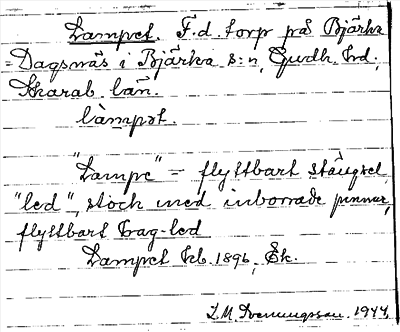 Lampet. F.d. torp på Bjärka
=Dagsnäs i Bjärka s:n, Gudh. hd.,
Skarab. län.
làmpət.
"Lampe" = flyttbart stängsel,
"led", stock med inborrade pinnar,
flyttbart trag-led
Lampet kb. 1896, Ek.
1944